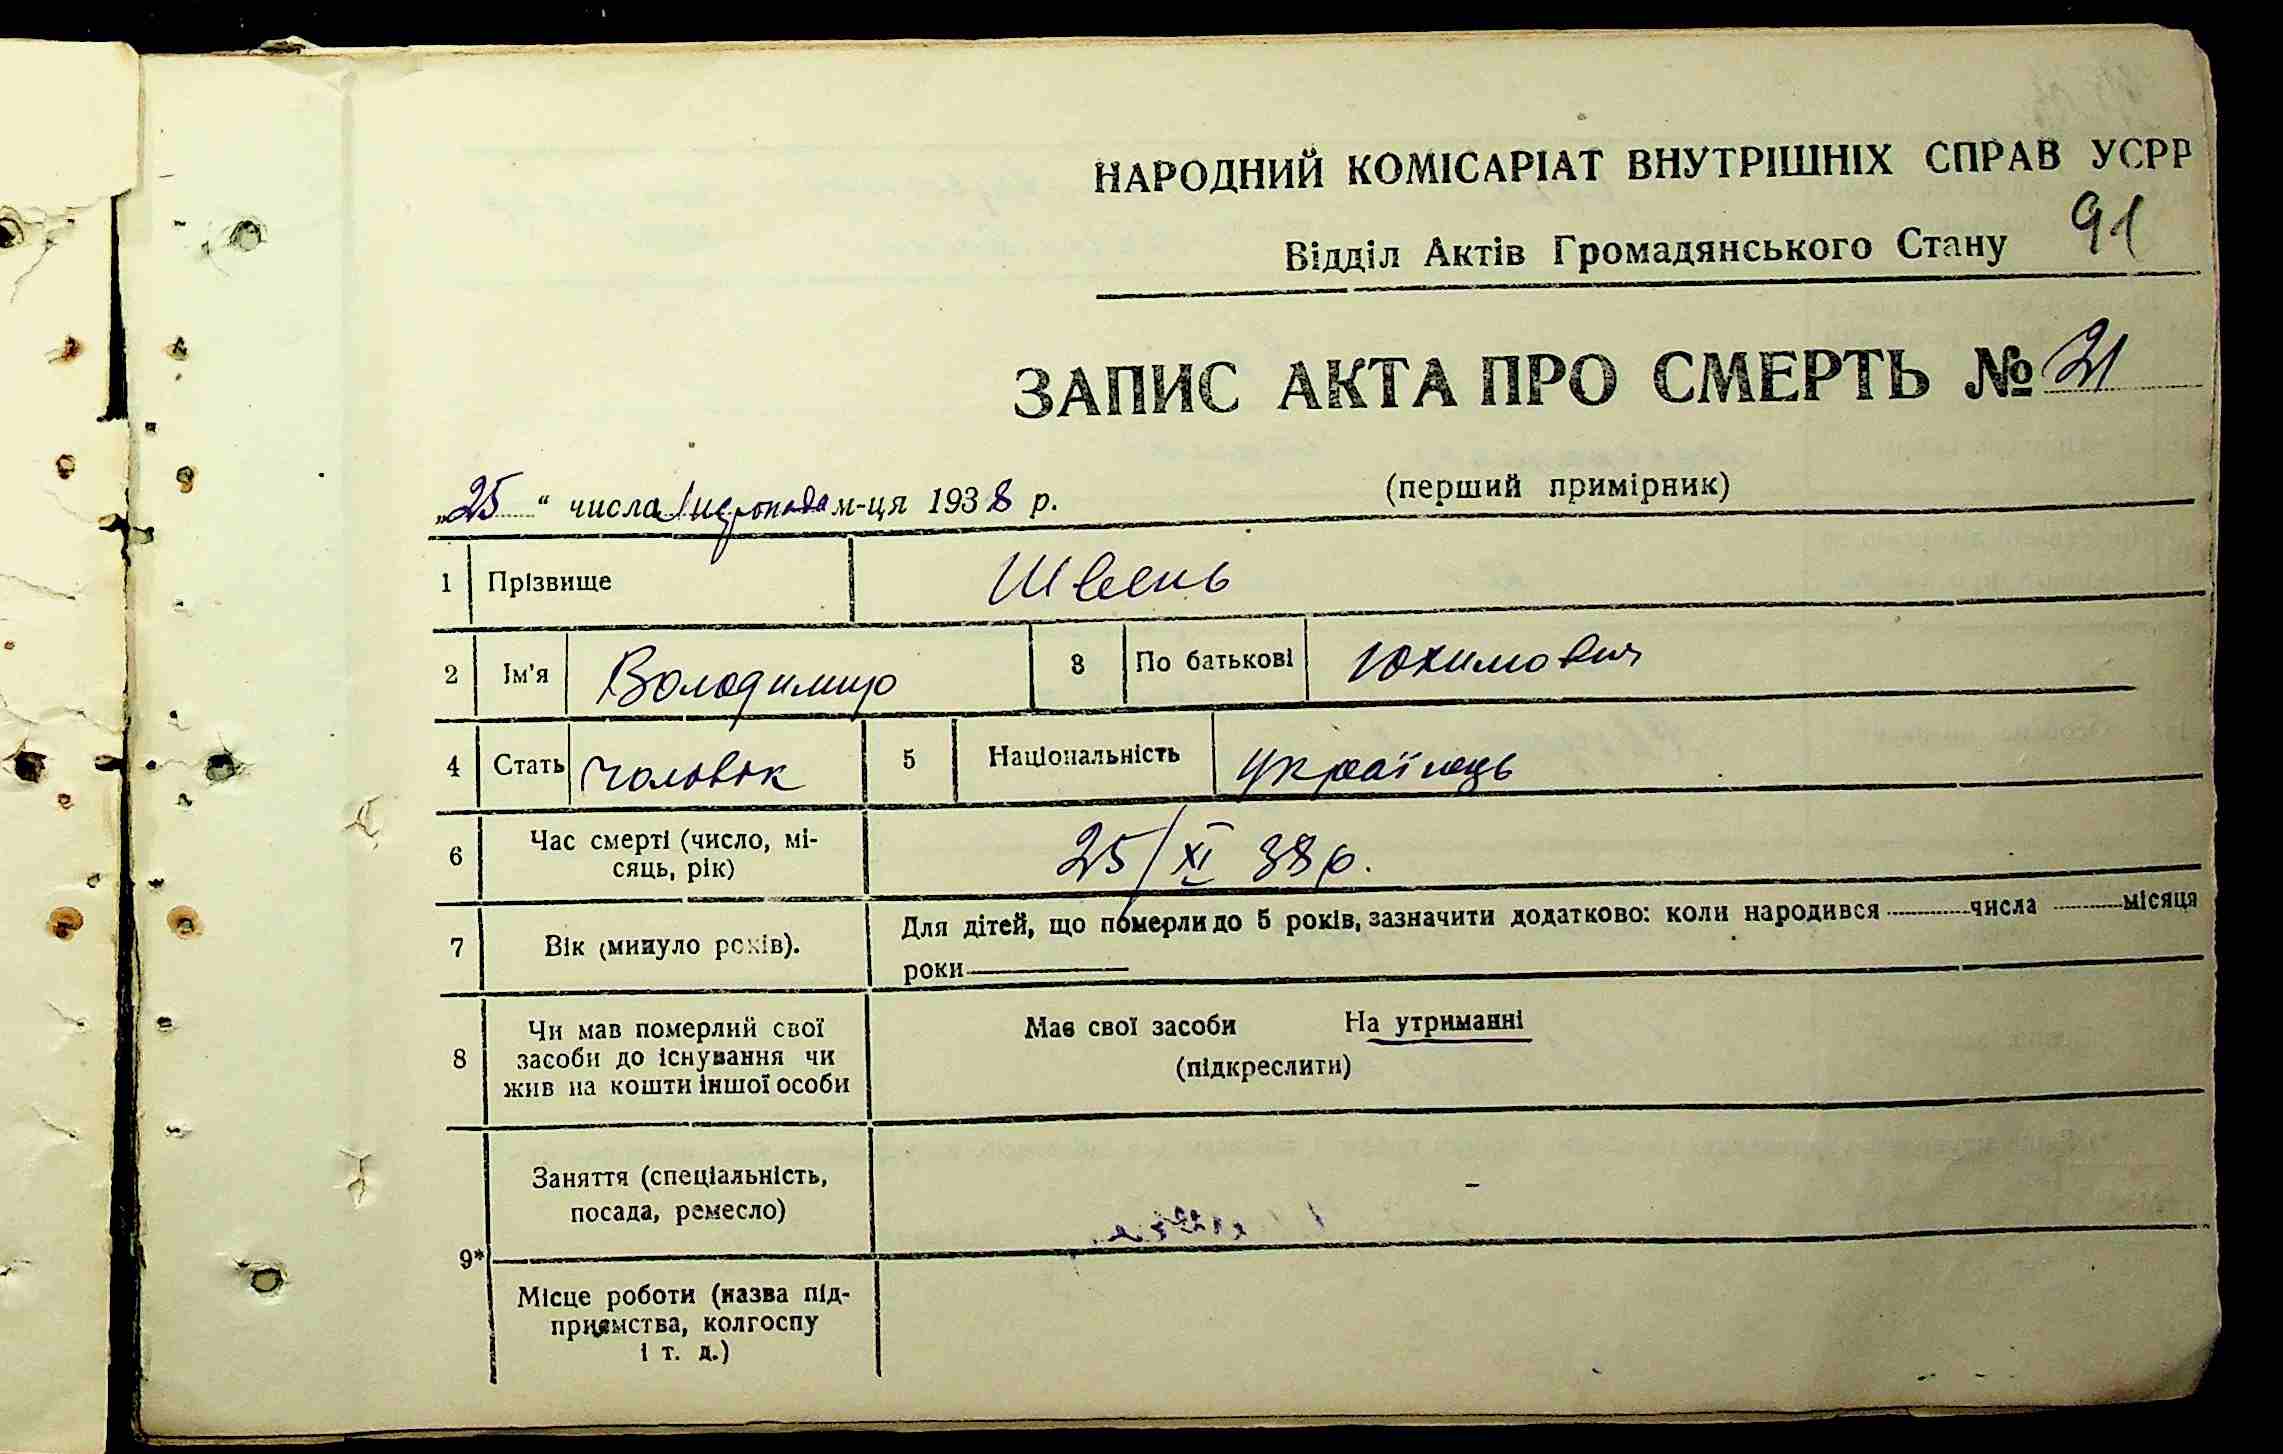 НАРОДНИЙ КОМІСАРІАТ ВНУТРІШНІХ СПРАВ УСРР
Відділ Актів Громадянського Стану 91
ЗАПИС АКТА ПРО СМЕРТЬ № 21
„25“ числа Листопада м-ця 1938 р. (перший примірник)
1 Прізвище Швень
2 Ім'я Володимир 3 По батькові Юхимович
4 Стать чоловік 5 Національність Українець
6 Час смерті (число, мі-
сяць, рік) 25/XI 38 р.
7 Вік (минуло років). Для дітей, що померли до 5 років, зазначити додатково: коли народився числа місяця
роки
8 Чи мав померлий свої
засоби до існування чи
жив на кошти іншої особи Має свої засоби На утриманні
(підкреслити)
9* Заняття (спеціальність,
посада, ремесло) -
Місце роботи (назва під-
приємства, колгоспу
і т. д.)